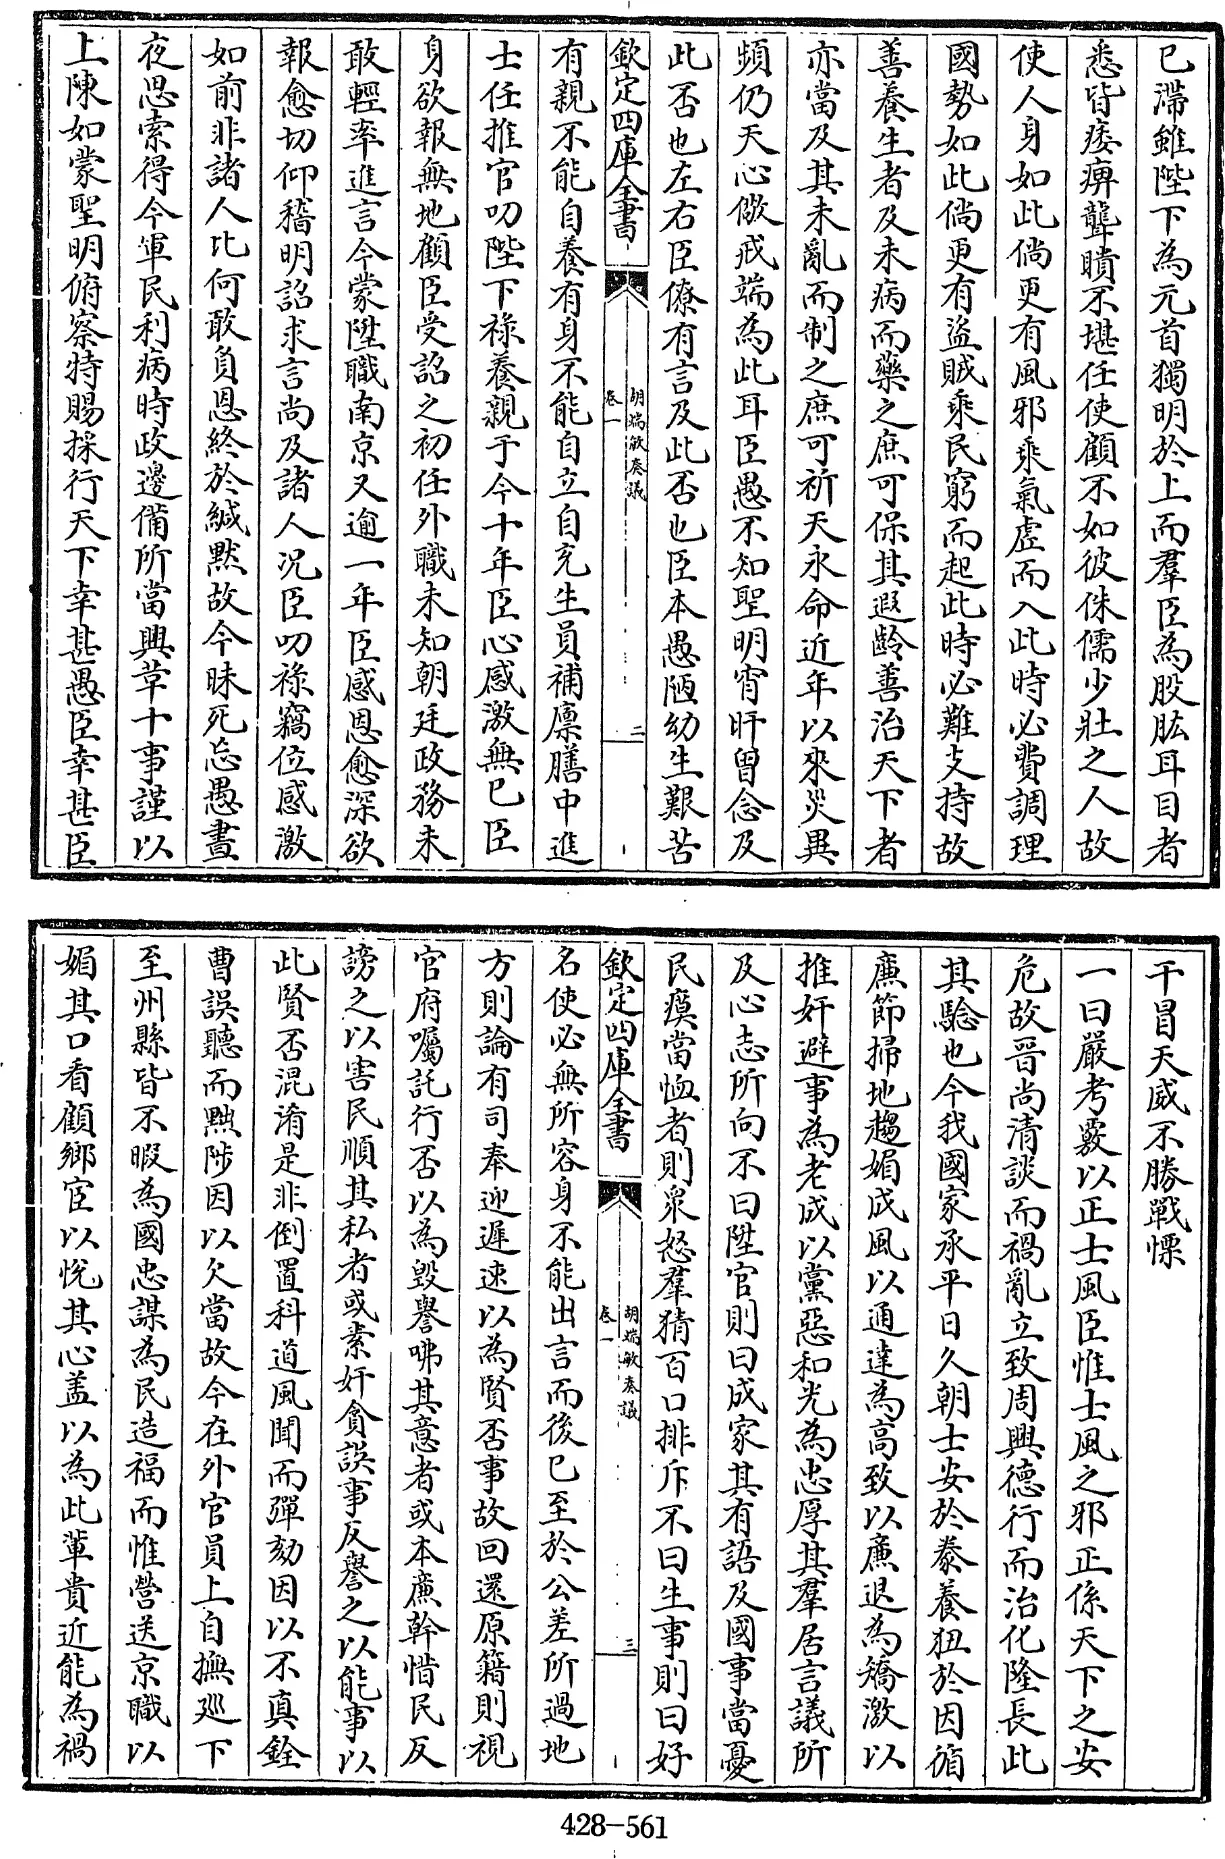 已滯雖陛下為元首獨明於上而羣臣為股肱耳目者
悉皆痿痹聾瞶不堪任使顧不如彼侏儒少壯之人故
使人身如此倘更有風邪乘氣虚而入此時必費調理
國勢如此倘更有盜賊乘民窮而起此時必難支持故
善養生者及未病而藥之庶可保其遐齡善治天下者
亦當及其未亂而制之庶可祈天永命近年以來災異
頻仍天心儆戒端為此耳臣愚不知聖明宵旰曽念及
此否也左右臣僚有言及此否也臣本愚陋幼生艱苦
欽定四庫全書
胡端敏奏議
卷一
二
有親不能自養有身不能自立自充生員補廪膳中進
士任推官叨陛下祿養親于今十年臣心感激無已臣
身欲報無地顧臣受詔之初任外職未知朝廷政務未
敢輕率進言今蒙陞職南京又逾一年臣感恩愈深欲
報愈切仰稽明詔求言尚及諸人况臣叨祿竊位感激
如前非諸人比何敢負恩終於緘默故今昧死忘愚晝
夜思索得今軍民利病時政邊備所當興革十事謹以
上陳如蒙聖明俯察特賜採行天下幸甚愚臣幸甚臣
干冒天威不勝戰慄
一曰嚴考覈以正士風臣惟士風之邪正係天下之安
危故晉尚清談而禍亂立致周興德行而治化隆長此
其驗也今我國家承平日久朝士安於豢養狃於因循
廉節掃地趨媚成風以通達為高致以廉退為矯激以
推奸避事為老成以黨惡和光為忠厚其羣居言議所
及心志所向不曰陞官則曰成家其有語及國事當憂
民瘼當恤者則衆怒羣猜百口排斥不曰生事則曰好
欽定四庫全書
胡端敏奏議
卷一
三
名使必無所容身不能出言而後已至於公差所過地
方則論有司奉迎遲速以為賢否事故回還原籍則視
官府囑託行否以為毁譽咈其意者或本廉幹惜民反
謗之以害民順其私者或素奸貪誤事反譽之以能事以
此賢否混淆是非倒置科道風聞而彈劾因以不真銓
曹誤聽而黜陟因以欠當故今在外官員上自撫巡下
至州縣皆不暇為國忠謀為民造福而惟營送京職以
媚其口看顧鄉宦以悅其心盖以為此輩貴近能為禍
428-561